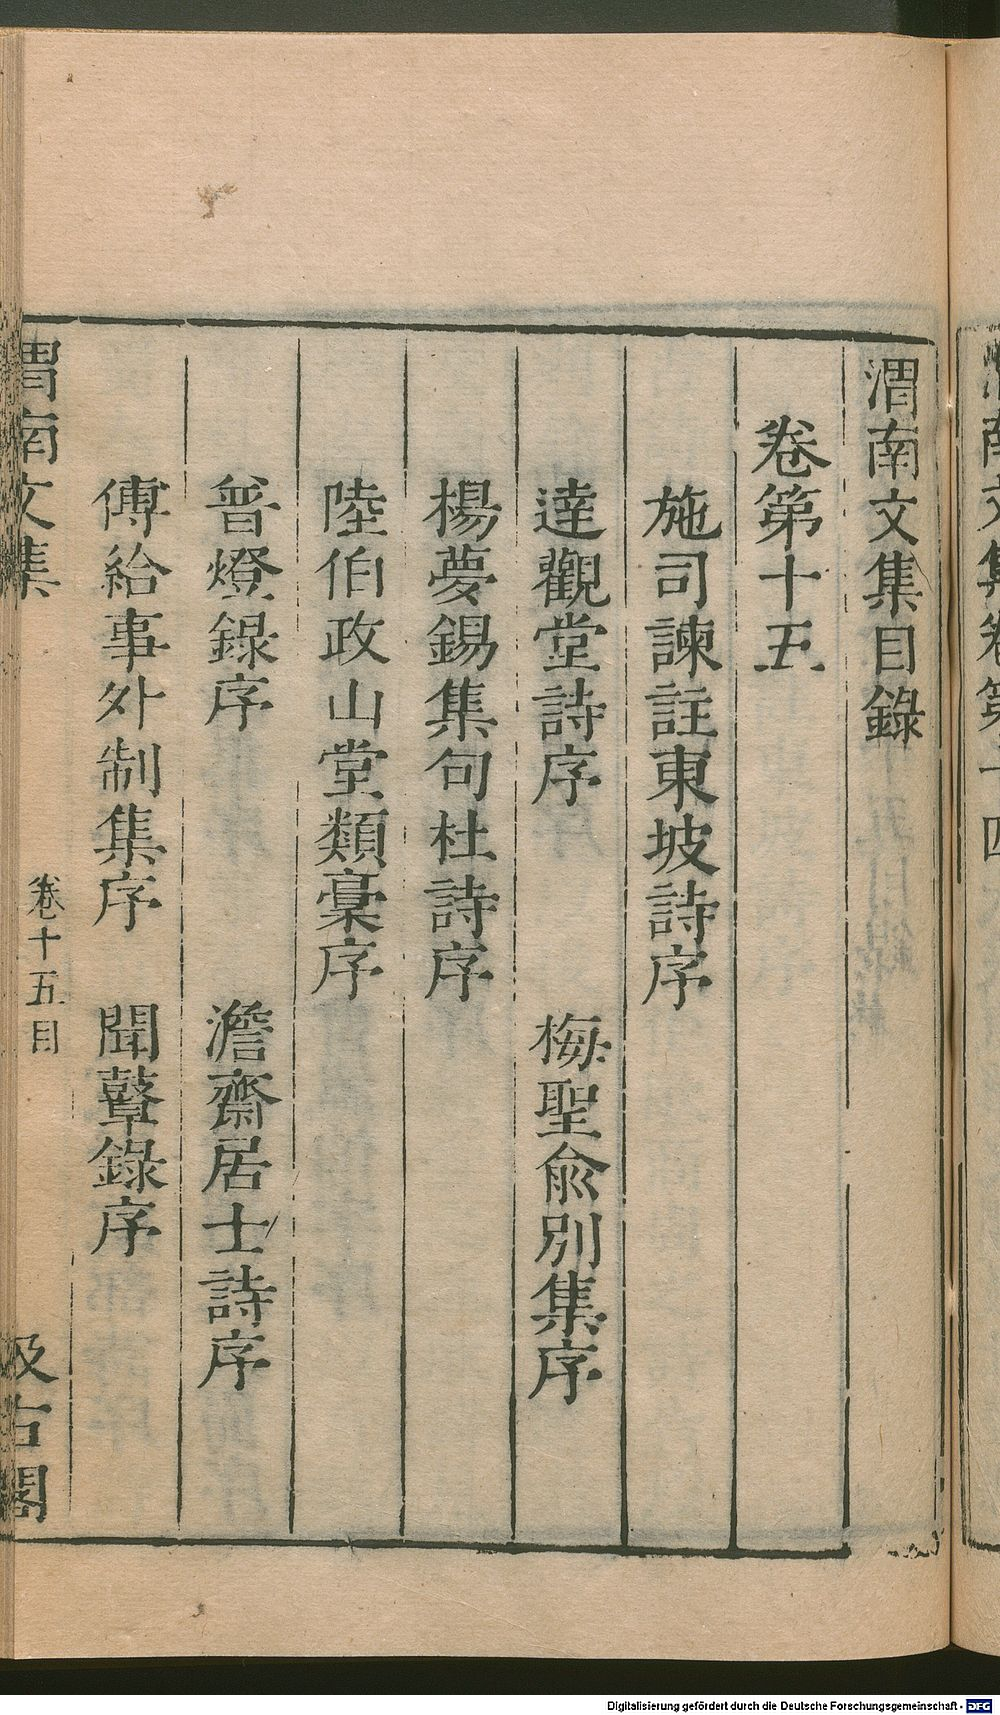 渭南文集目錄
卷第十五
施司諫註東坡詩序
達觀堂詩序　梅聖兪別集序
楊夢錫集句杜詩序
陸伯政山堂類藁序
普燈録序　澹齋居士詩序
傅給事外制集序　聞鼙錄序
渭南文集　卷十五目　汲古閣
Digitalisierung gefördert durch die Deutsche Forschungsgemeinschaft - DFG